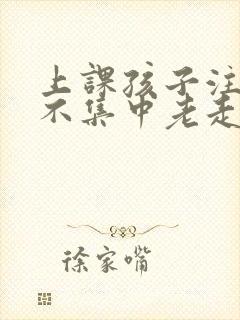 上課孩子注
不集中老走
徐家嘴